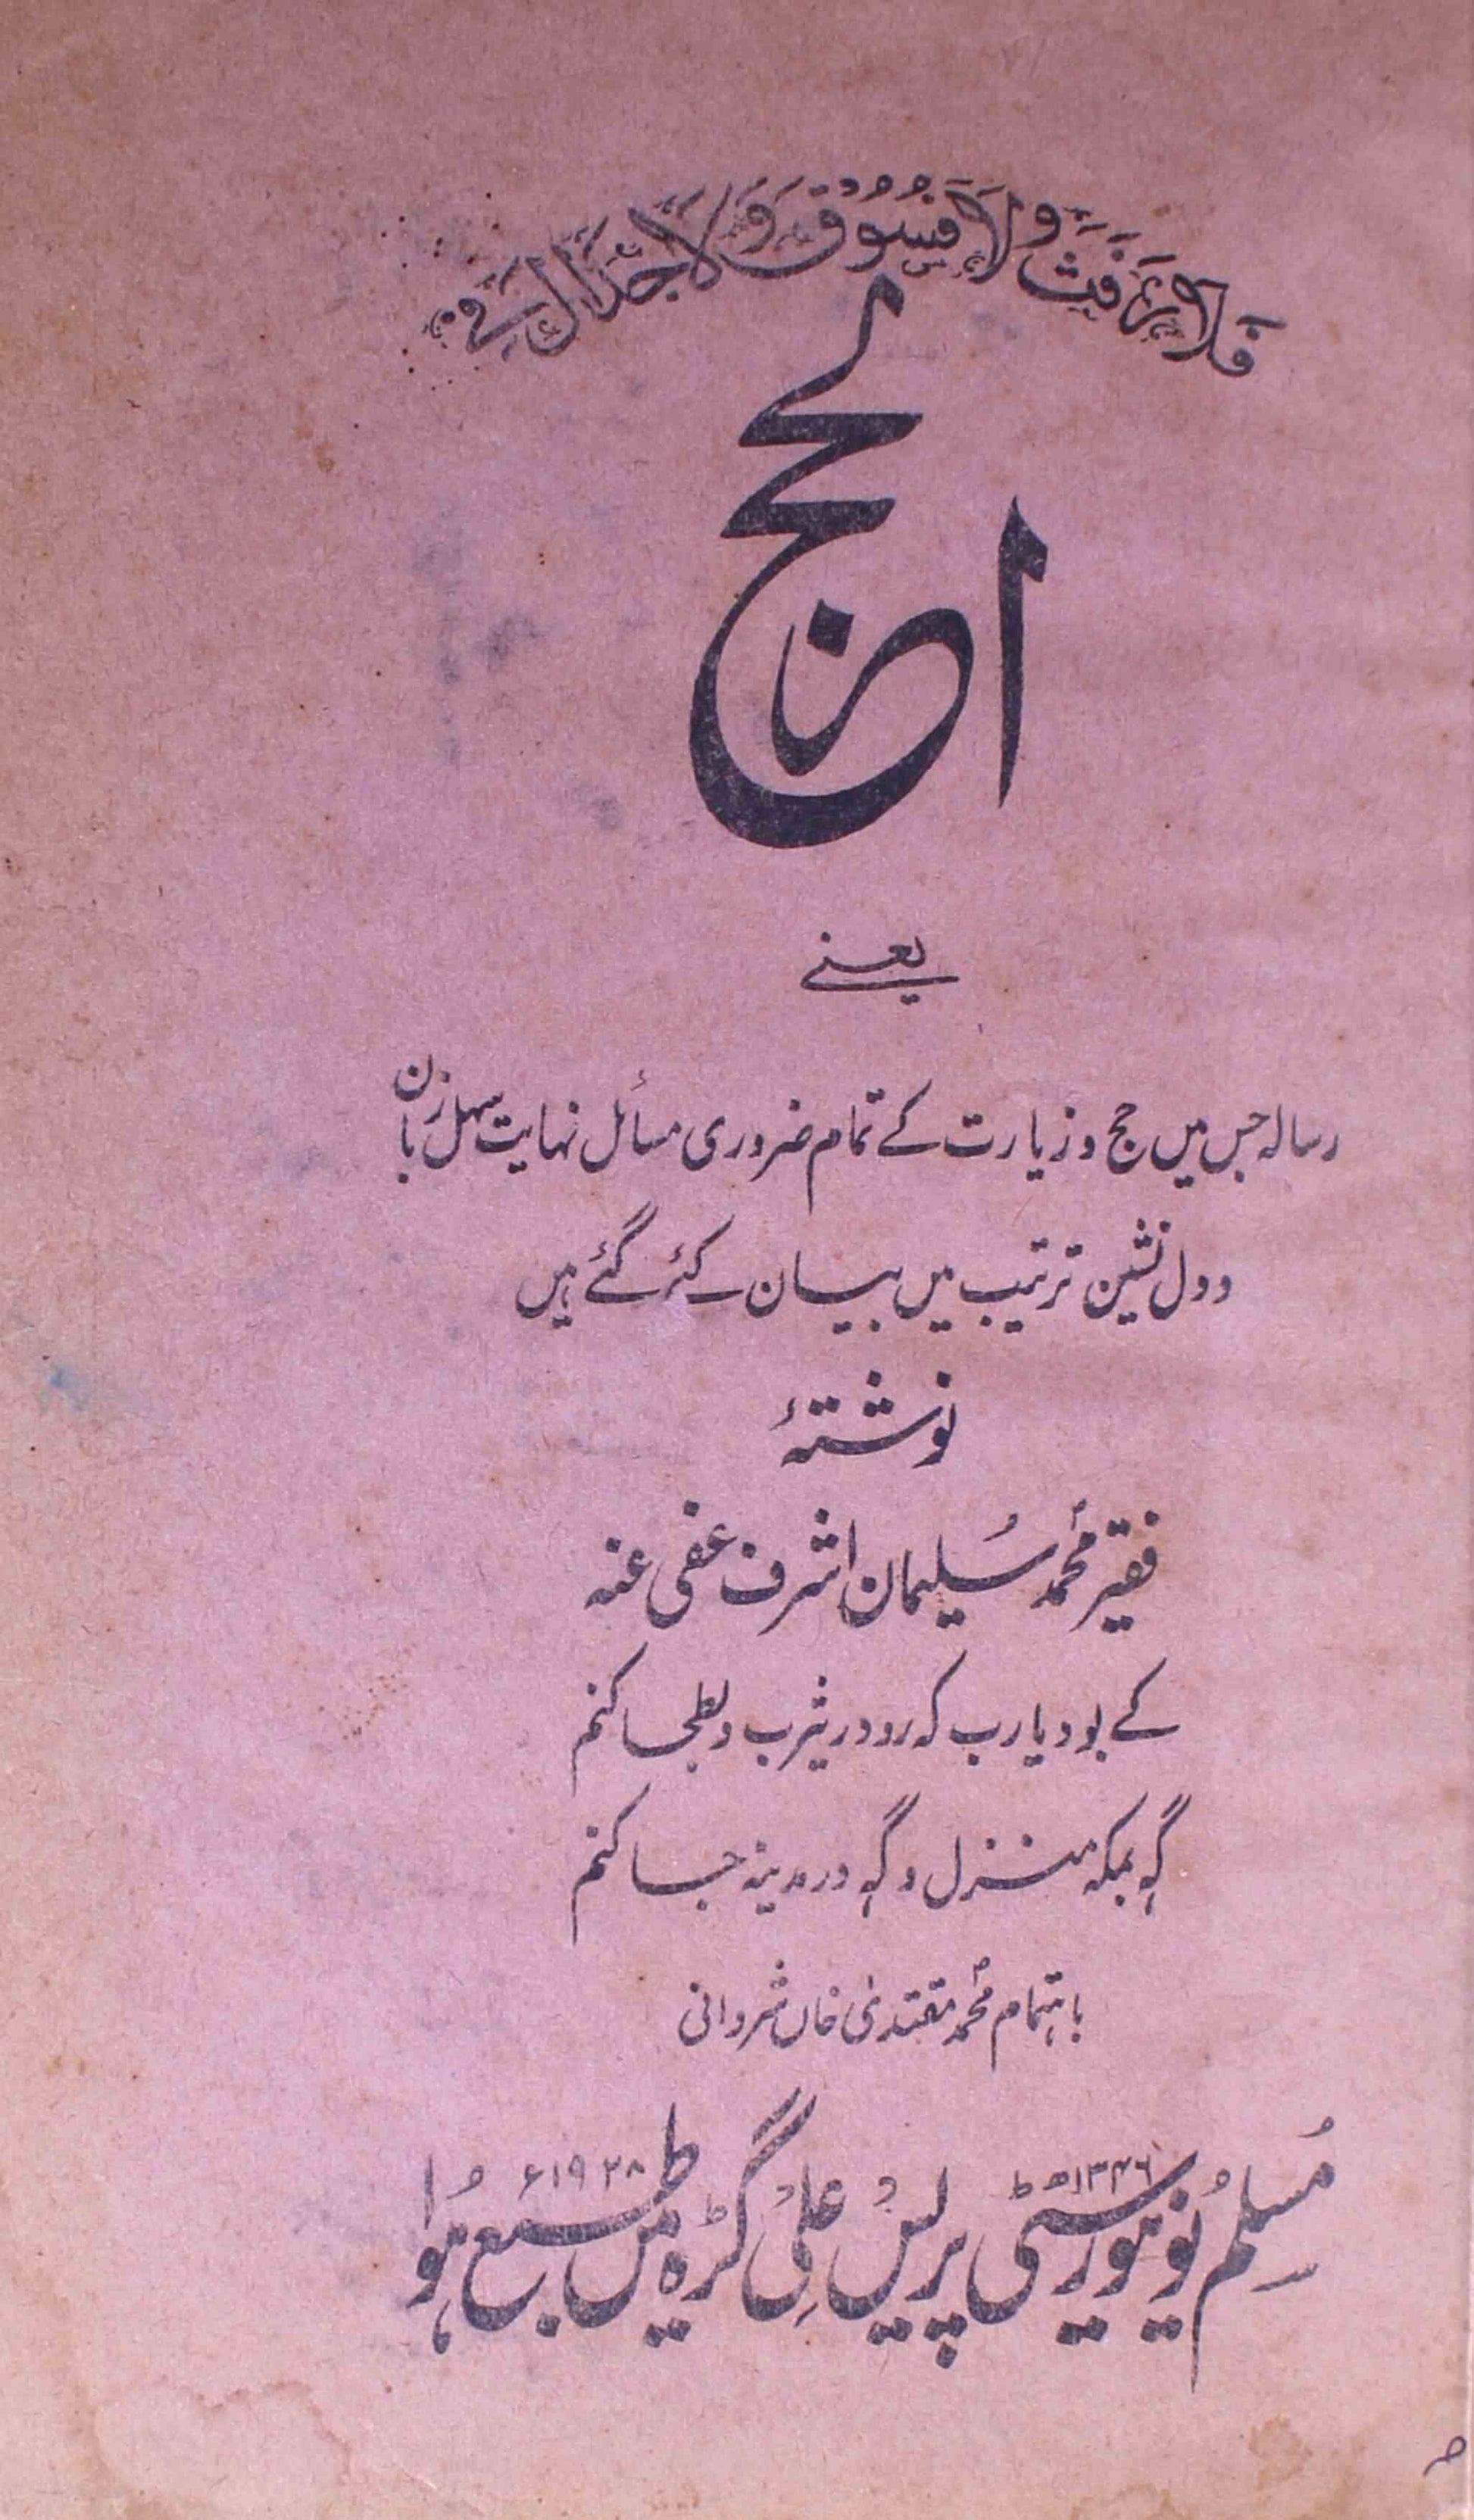 فَلَا رَفَثَ وَلَا فُسُوْقَ وَلَا جِدَالَ فِے
الحج
یعنے
رسالہ جس میں حج و زیارت کے تمام ضروری مسائل نہایت سہل زبان
و دل نشین ترتیب میں بیان کئے گئے ہیں
نوشتۂ
فقیر محمد سُلیمان اشرف عفی عنہ
کے بود یارب کہ رو در یثرب و بطحا کنم
گہ بمکہ منزل و گہ در مدینہ جا کنم
باہتمام محمد مقتدیٰ خاں شروانی
۱۳۴۶ھ ۱۹۲۸ء
مُسلِم یُونیورسٹی پریس علی گڑہ میں طبع ہُوا